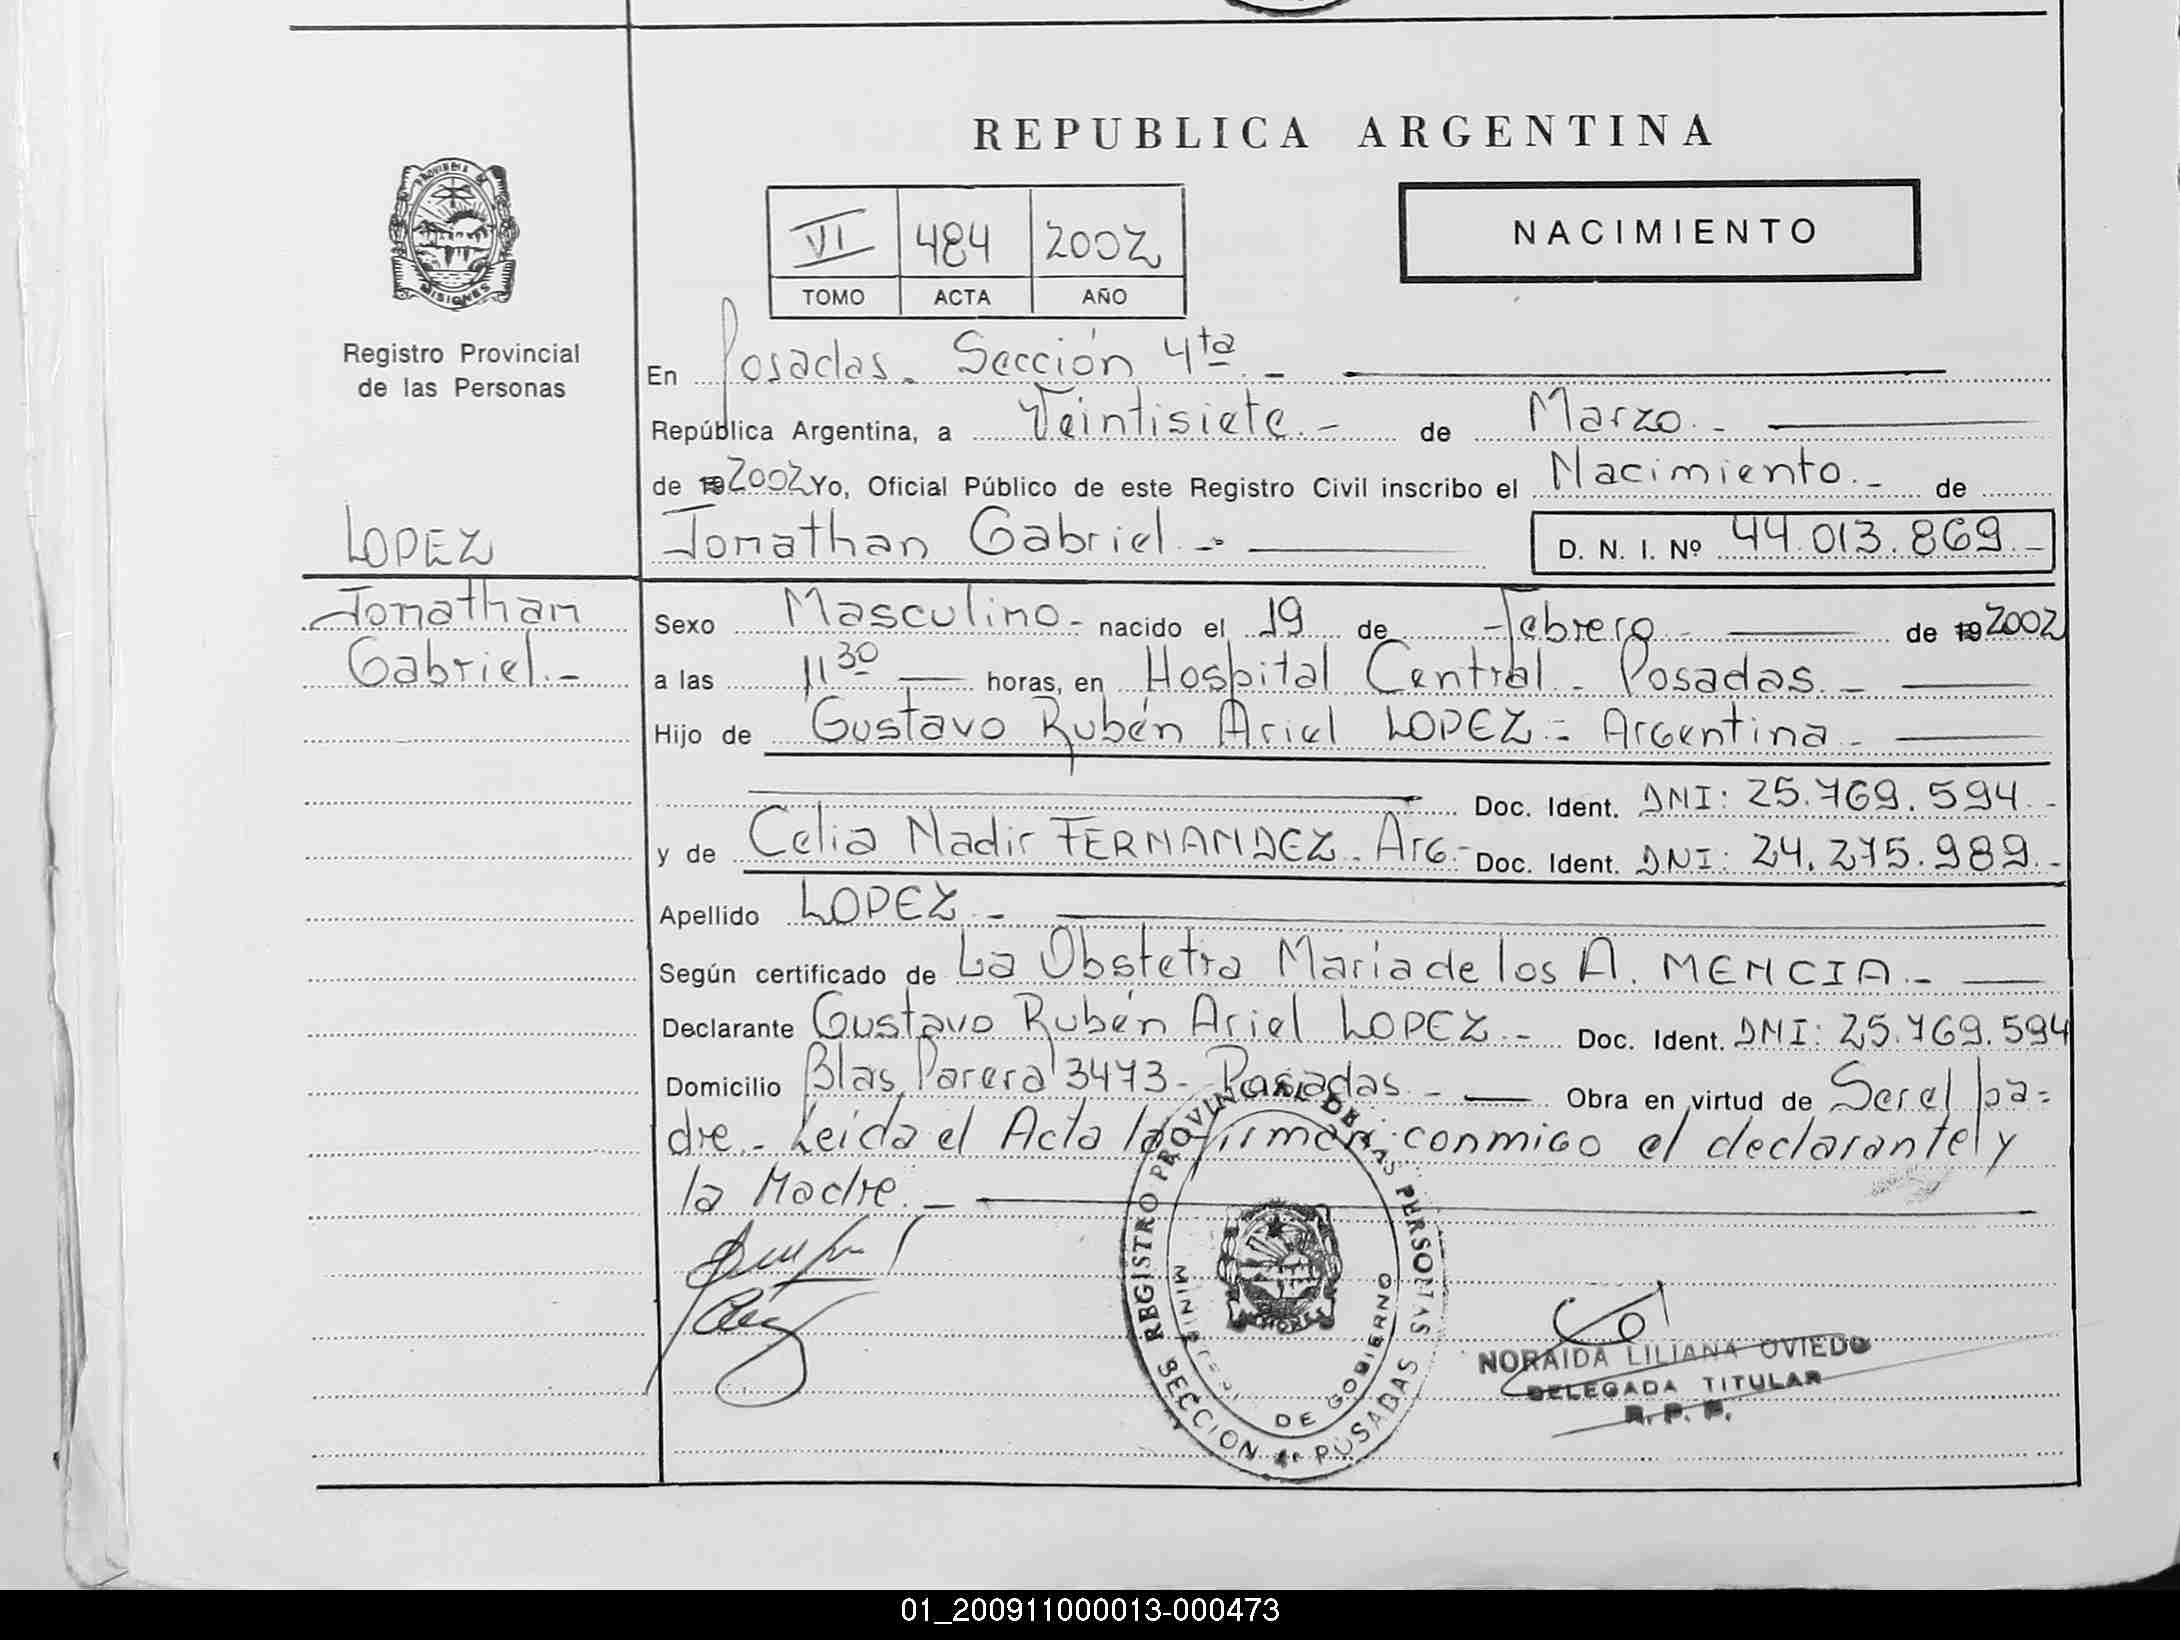 REPUBLICA ARGENTINA
PROVINCIA DE MISIONES
Registro Provincial
de las Personas
VI 484 2002
TOMO ACTA AÑO
NACIMIENTO
En Posadas. Sección 4ta. -
República Argentina, a Veintisiete.- de Marzo.-
de 192002 Yo, Oficial Público de este Registro Civil inscribo el Nacimiento.- de
LOPEZ
Jonathan Gabriel.- D. N. I. Nº 44.013.869.-
Jonathan
Gabriel.-
Sexo Masculino.- nacido el 19 de Febrero - de 192002
a las 11 30 horas, en Hospital Central - Posadas.-
Hijo de Gustavo Rubén Ariel LOPEZ = Argentina.-
Doc. Ident. DNI: 25.769.594.-
y de Celia Nadir FERNANDEZ. Arg.- Doc. Ident. DNI: 24.275.989.-
Apellido LOPEZ.-
Según certificado de La Obstetra Maria de los A. MENCIA.-
Declarante Gustavo Rubén Ariel LOPEZ.- Doc. Ident. DNI: 25.769.594
Domicilio Blas Parera 3473- Posadas.- Obra en virtud de Ser el pa=
dre.- Leida el Acta la firman conmigo el declarante y
la Madre.-
REGISTRO PROVINCIAL DE LAS PERSONAS
DE GOBIERNO
SECCION 4a POSADAS
NORAIDA LILIANA OVIEDO
DELEGADA TITULAR
R. P. P.
01_200911000013-000473